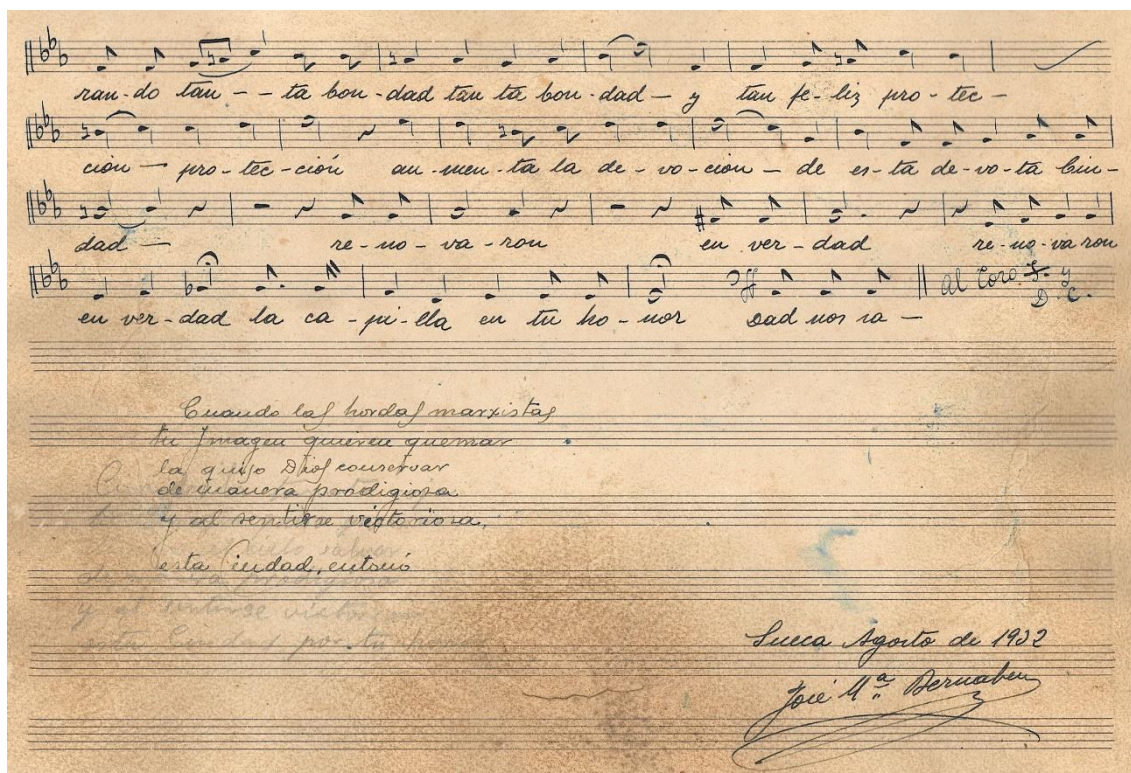 ran-do tan - - ta bon-dad tan ta bon-dad - y tan fe-liz pro-tec-
cion - pro-tec-ción au-men-ta la de-vo-cion - de es-ta de-vo-ta Ciu-
dad - re-no-va-ron en ver-dad re-no-va ron
en ver-dad la ca-pi-lla en tu ho-nor Dad nos la -
Al Coro. y
D. C.
Cuando las hordas marxistas
tu Imagen quieren quemar
la quiso Dios conservar
de manera prodigiosa
y al sentirse victoriosa,
esta Ciudad, entonó
y al sentirse
esta Ciudad por tu
Sueca Agosto de 1932
José Mª Bernabeu